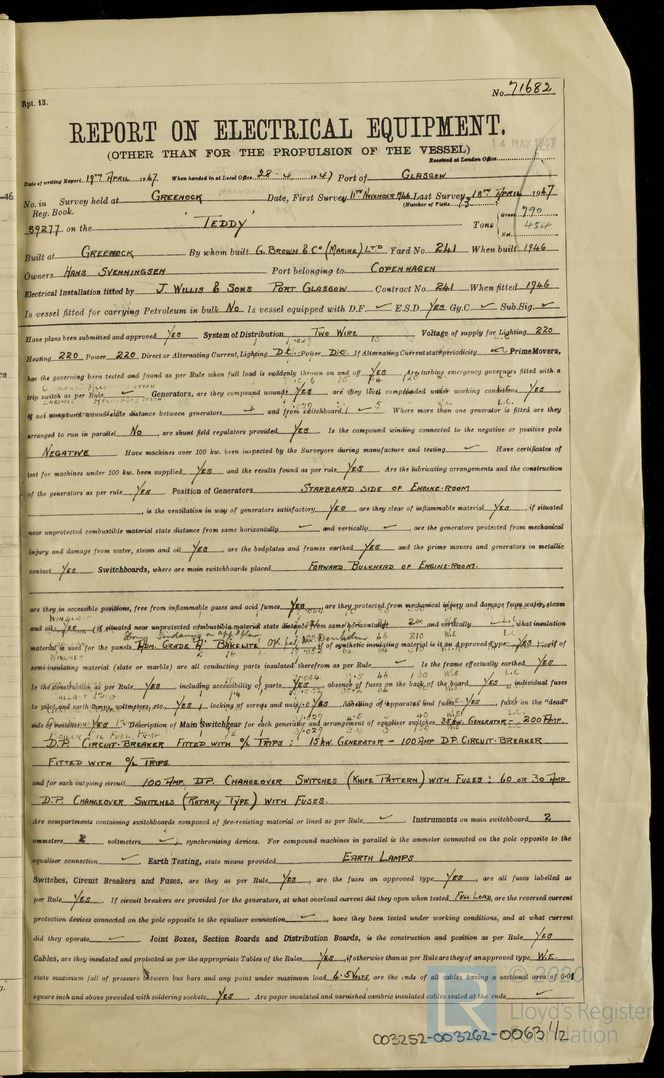 Rpt. 13.
No. 71682
REPORT ON ELECTRICAL EQUIPMENT.
14 MAY 1947
(OTHER THAN FOR THE PROPULSION OF THE VESSEL)
Received at London Office
Date of writing Report 19TH APRIL 1947 When handed in at Local Office 28-4-1947 Port of GLASGOW
No. in Survey held at GREENOCK Date, First Survey 11TH NOVEMBER 1946 Last Survey 18TH APRIL 1947
Reg. Book. (Number of Visits 13)
89277 on the 'TEDDY' Tons Gross 790 Net 454
Built at GREENOCK By whom built G. BROWN & CO (MARINE) LTD Yard No. 241 When built 1946
Owners HANS SVENNINGSEN Port belonging to COPENHAGEN
Electrical Installation fitted by J WILLIS & SONS PORT GLASGOW Contract No. 241 When fitted 1946
Is vessel fitted for carrying Petroleum in bulk NO Is vessel equipped with D.F. ✓ E.S.D. YES Gy.C. ✓ Sub.Sig. ✓
Have plans been submitted and approved YES System of Distribution TWO WIRE Voltage of supply for Lighting 220
Heating 220 Power 220 Direct or Alternating Current, Lighting D.C. Power D.C. If Alternating Current state periodicity ✓ Prime Movers,
has the governing been tested and found as per Rule when full load is suddenly thrown on and off YES Are turbine emergency governors fitted with a
trip switch as per Rule ✓ Generators, are they compound wound YES, are they level compounded under working conditions YES,
if not compound wound state distance between generators and from switchboard Where more than one generator is fitted are they
arranged to run in parallel NO, are shunt field regulators provided YES Is the compound winding connected to the negative or positive pole
NEGATIVE Have machines over 100 kw. been inspected by the Surveyors during manufacture and testing ✓ Have certificates of
test for machines under 100 kw. been supplied YES and the results found as per rule YES Are the lubricating arrangements and the construction
of the generators as per rule YES Position of Generators STARBOARD SIDE OF ENGINE-ROOM
, is the ventilation in way of generators satisfactory YES are they clear of inflammable material YES, if situated
near unprotected combustible material state distance from same horizontally ✓ and vertically ✓, are the generators protected from mechanical
injury and damage from water, steam and oil YES, are the bedplates and frames earthed YES and the prime movers and generators in metallic
contact YES Switchboards, where are main switchboards placed FORWARD BULKHEAD OF ENGINE-ROOM.
are they in accessible positions, free from inflammable gases and acid fumes YES are they protected from mechanical injury and damage from water, steam
and oil YES, if situated near unprotected combustible material state distance from same horizontally and vertically, what insulation
material is used for the panels GRADE 'A' BAKELITE if of synthetic insulating material is it an approved type YES if of
semi-insulating material (slate or marble) are all conducting parts insulated therefrom as per Rule ✓ Is the frame effectually earthed YES
Is the construction as per Rule YES, including accessibility of parts YES absence of fuses on the back of the board YES, individual fuses
to pilot and earth lamps, voltmeters, etc. YES, locking of screws and nuts YES labelling of apparatus and fuses YES, fuses on the "dead"
side of switches YES Description of Main Switchgear for each generator and arrangement of equaliser switches 35 KW. GENERATOR - 200 AMP.
D.P. CIRCUIT-BREAKER FITTED WITH O/L TRIPS; 15 KW. GENERATOR - 100 AMP D.P. CIRCUIT-BREAKER
FITTED WITH O/L TRIPS
and for each outgoing circuit 100 AMP. D.P. CHANGEOVER SWITCHES (KNIFE PATTERN) WITH FUSES; 60 OR 30 AMP
D.P. CHANGEOVER SWITCHES (ROTARY TYPE) WITH FUSES.
Are compartments containing switchboards composed of fire-resisting material or lined as per Rule ✓ Instruments on main switchboard 2
ammeters 2 voltmeters ✓ synchronising devices. For compound machines in parallel is the ammeter connected on the pole opposite to the
equaliser connection ✓ Earth Testing, state means provided EARTH LAMPS
Switches, Circuit Breakers and Fuses, are they as per Rule YES, are the fuses an approved type YES, are all fuses labelled as
per Rule YES If circuit breakers are provided for the generators, at what overload current did they open when tested FULL LOAD, are the reversed current
protection devices connected on the pole opposite to the equaliser connection ✓, have they been tested under working conditions, and at what current
did they operate ✓ Joint Boxes, Section Boards and Distribution Boards, is the construction and position as per Rule YES
Cables, are they insulated and protected as per the appropriate Tables of the Rules YES, if otherwise than as per Rule are they of an approved type W.E.
state maximum fall of pressure between bus bars and any point under maximum load 4.5 VOLTS, are the ends of all cables having a sectional area of 0.01
square inch and above provided with soldering sockets YES Are paper insulated and varnished cambric insulated cables sealed at the ends ✓
© 2020
Lloyd's Register
Foundation
003252-003262-0063 1/2